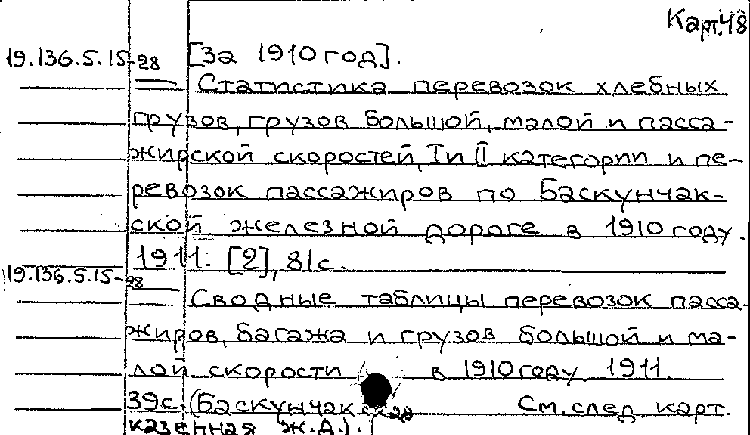 Карт. 48
19.136.5.15-28 [За 1910 год].
Статистика перевозок хлебных
грузов, грузов большой, малой и пасса-
жирской скоростей, I и II категории и пе-
ревозок пассажиров по Баскунчак-
ской железной дороге в 1910 году.
1911. [2], 81с.
19.136.5.15-28
Сводные таблицы перевозок пасса-
жиров, багажа и грузов большой и ма-
лой скорости в 1910 году. 1911.
39с. (Баскунчакская См. след. карт.
казенная ж.д.).